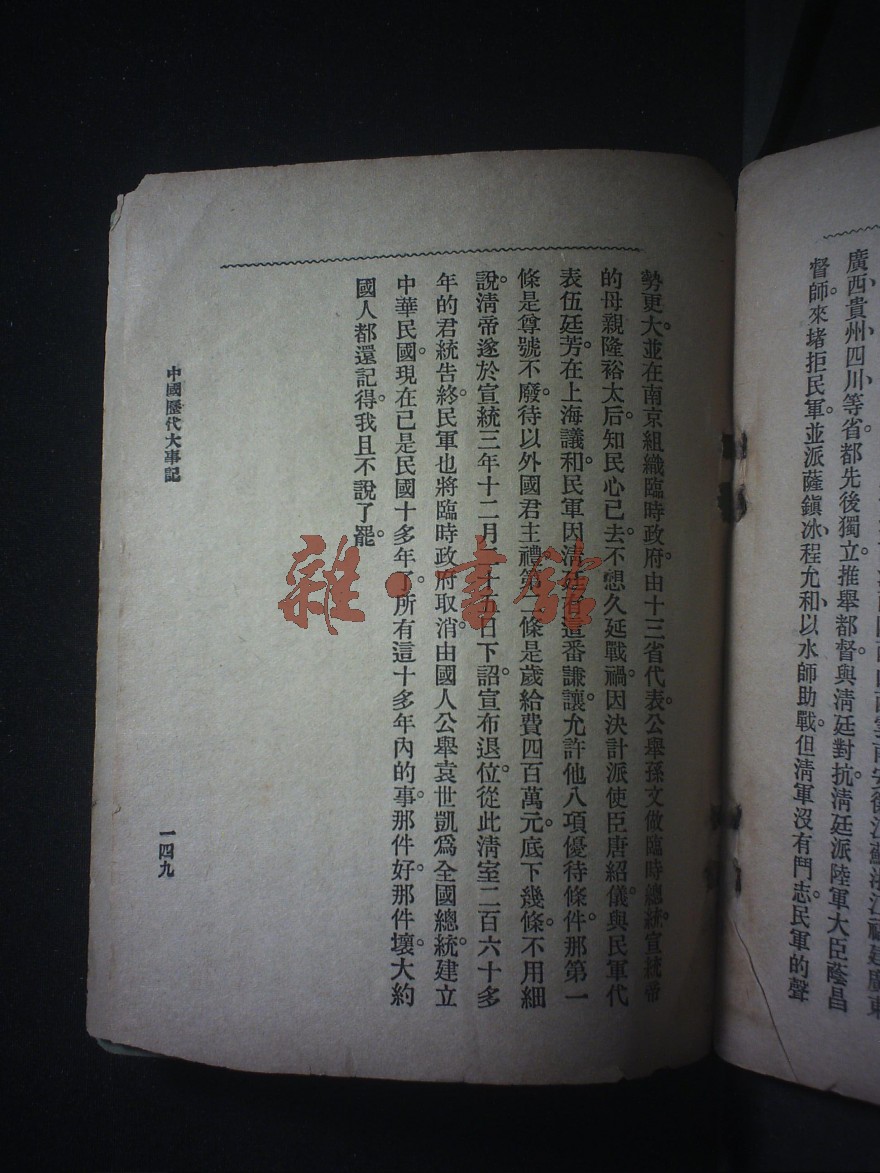 廣西貴州四川等省都先後獨立。推舉都督與清廷對抗。清廷派陸軍大臣蔭昌
督師來堵拒民軍。並派薩鎮冰程允和以水師助戰。但清軍沒有鬥志。民軍的聲
勢更大。並在南京組織臨時政府。由十三省代表公舉孫文做臨時總統。宣統帝
的母親隆裕太后。知民心已去。不想久延戰禍。因決計派使臣唐紹儀。與民軍代
表伍廷芳。在上海議和。民軍因清廷有這番謙讓。允許他八項優待條件。那第一
條是尊號不廢。待以外國君主禮。第二條是歲給費四百萬元。底下幾條。不用細
說。清帝遂於宣統三年十二月二十五日下詔宣布退位。從此清室二百六十多
年的君統告終。民軍也將臨時政府取消。由國人公舉袁世凱爲全國總統。建立
中華民國。現在已是民國十多年了。所有這十多年內的事。那件好。那件壞。大約
國人都還記得。我且不說了罷。
中國歷代大事記
一四九
雜·書館